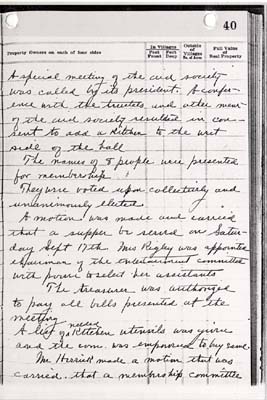 40
Property Owners on each of four sides
In Villages
Feet Front
Feet Deep
Outside of Villages No. of Acres
Full Value of Real Property
A special meeting of the aid society
was called by its president. A confer-
ence with the trustees and other mem
of the aid society resulted in con-
sent to add a kitchen to the west
side of the hall
The names of 8 people were presented
for membership
They were voted upon collectively and
unanimously elected
A motion was made and carried
that a supper be served on Satur-
day Sept 17th. Mrs Rigby was appointed
chairman of the entertainment committee
with power to select her assistants
The treasurer was authorized
to pay all bills presented at the
meeting
A list of needed kitchen utensils was given
and the com. was empowered to buy same.
Mr Herrick made a motion that was
carried, that a membership committee